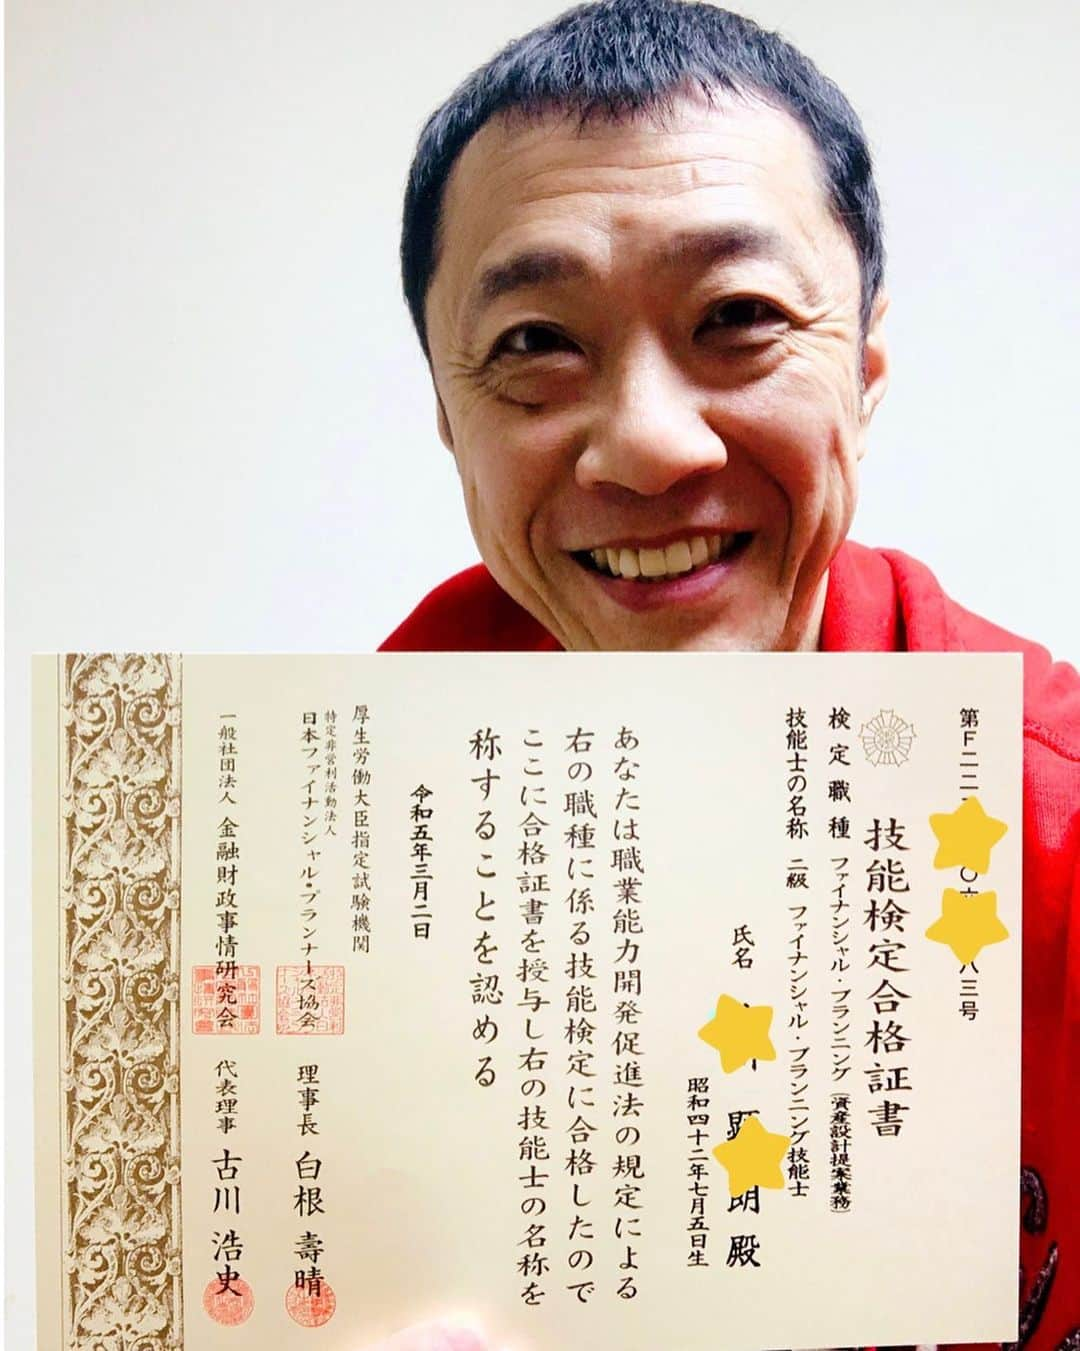 第F二二
〇六
八三号
技能検定合格証書
検定職種 ファイナンシャル・プランニング(資産設計提案業務)
技能士の名称 二級 ファイナンシャル・プランニング技能士
氏名
顕
朗 殿
昭和四十二年七月五日生
あなたは職業能力開発促進法の規定による
右の職種に係る技能検定に合格したので
ここに合格証書を授与し右の技能士の名称を
称することを認める
令和五年三月二日
厚生労働大臣指定試験機関
特定非営利活動法人
日本ファイナンシャル・プランナーズ協会 理事長 白根 壽晴
一般社団法人 金融財政事情研究会 代表理事 古川 浩史